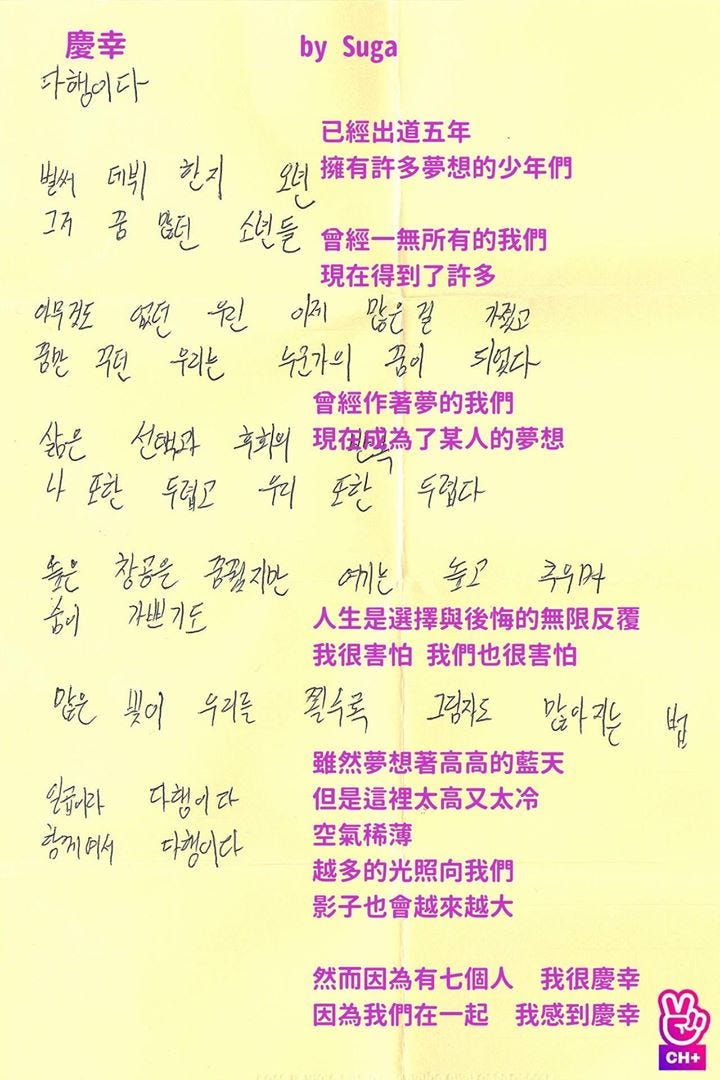 慶幸 by Suga
다행이다
已經出道五年
擁有許多夢想的少年們
벌써 데뷔 한지 오년
그저 꿈 많던 소년들
曾經一無所有的我們
現在得到了許多
아무것도 없던 우린 이제 많은걸 가졌고
꿈만 꾸던 우리는 누군가의 꿈이 되었다
曾經作著夢的我們
現在成為了某人的夢想
삶은 선택과 후회의 반복
나 또한 두렵고 우리 또한 두렵다
높은 창공을 꿈꿨지만 여기는 높고 추우며
숨이 가쁘기도
人生是選擇與後悔的無限反覆
我很害怕 我們也很害怕
많은 빛이 우리를 쬘수록 그림자도 많아지는 법
雖然夢想著高高的藍天
但是這裡太高又太冷
空氣稀薄
越多的光照向我們
影子也會越來越大
일곱이라 다행이다
함께여서 다행이다
然而因為有七個人 我很慶幸
因為我們在一起 我感到慶幸
CH+